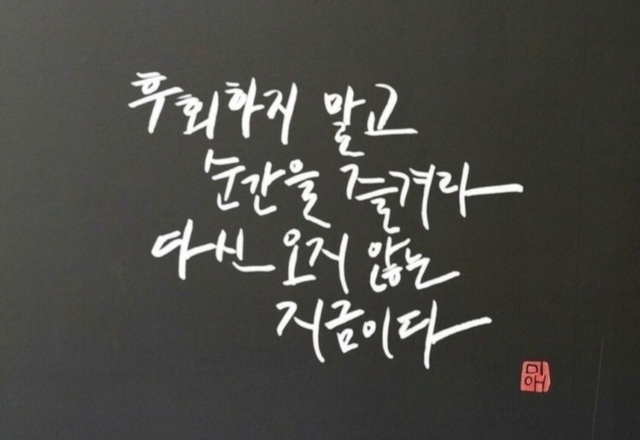 후회하지 말고
순간을 즐겨라
다신 오지 않는
지금이다
미애